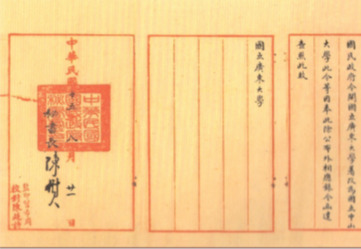 國民政府令開國立廣東大學着改為國立中山
大學此令等因奉此除公布外相應錄令函達
查照此致
國立廣東大學
中華民國十五 八月廿一日
秘書長陳樹人
校對陳